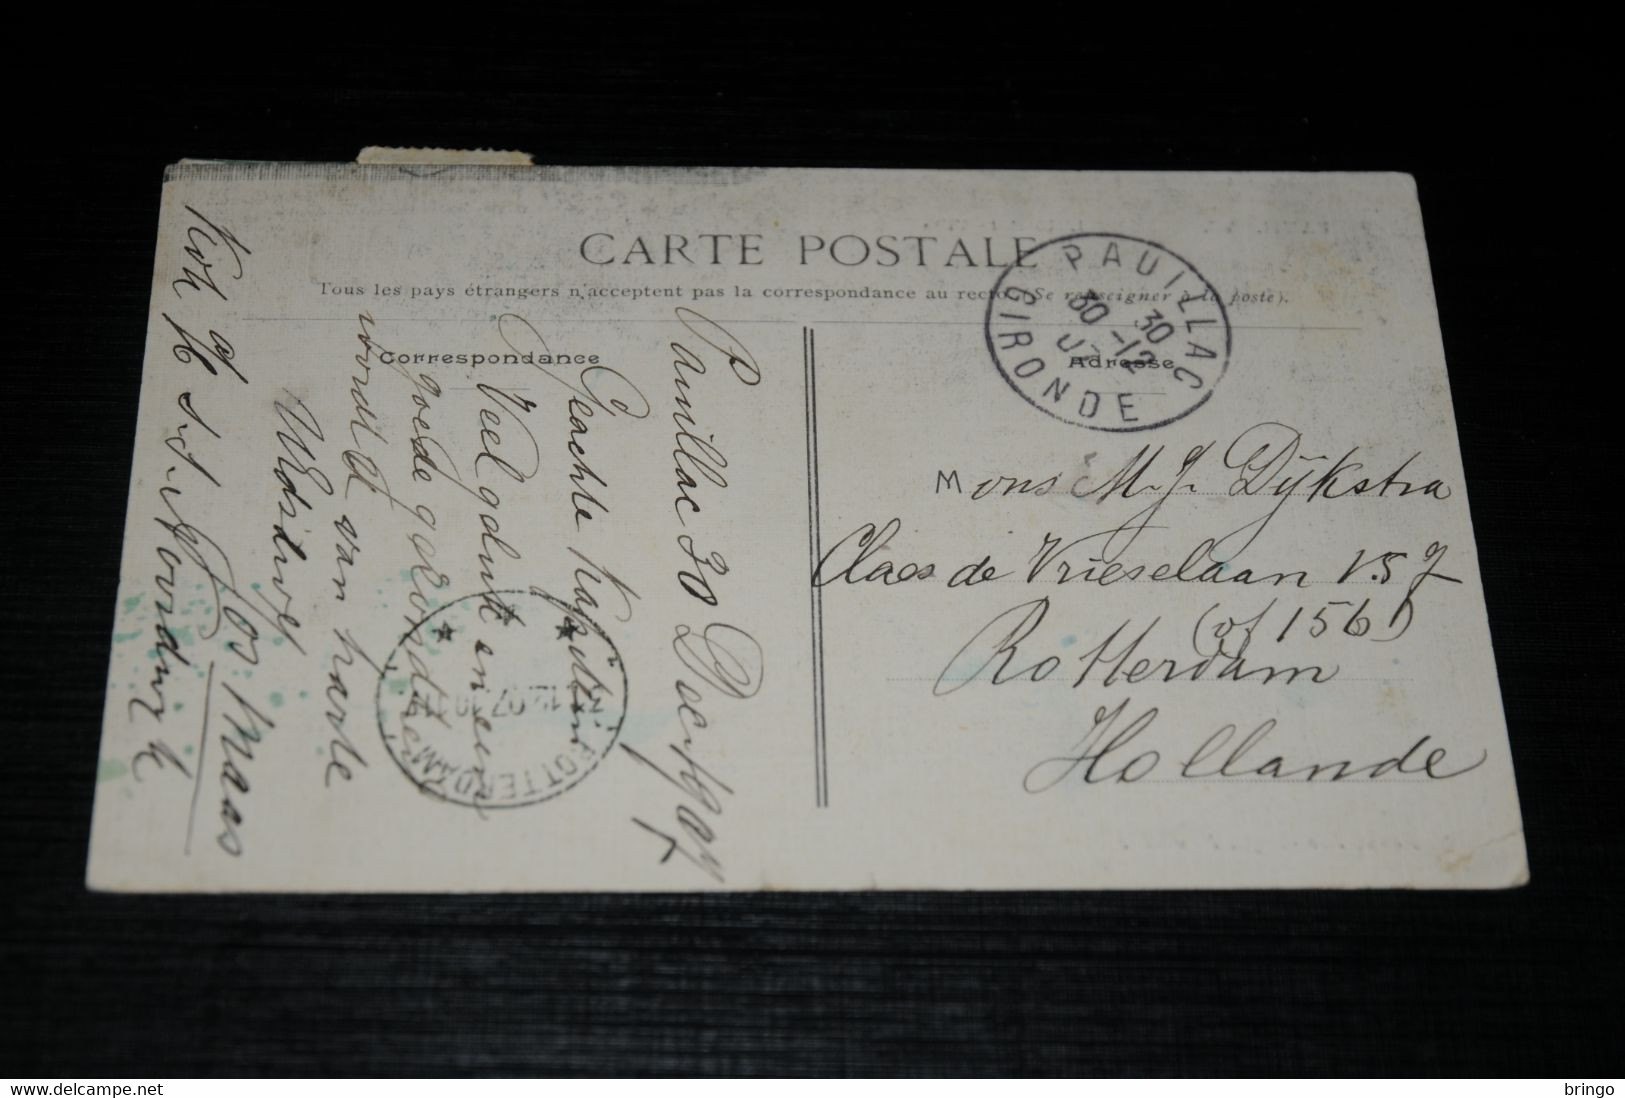 CARTE POSTALE
Tous les pays étrangers n'acceptent pas la correspondance au recto. (Se renseigner à la poste).
Correspondance
Adresse
PAUILLAC
30
30-12
GIRONDE
Pauillac 30 Dec
Geachte Kapitein
Veel geluk en een
goede gezondheid
wordt U van harte
Jos Maas
ROTTERDAM
12.07
Mons M. J. Dijkstra
Claes de Vrieselaan 157
(of 156)
Rotterdam
Hollande
www.delcampe.net
bringo